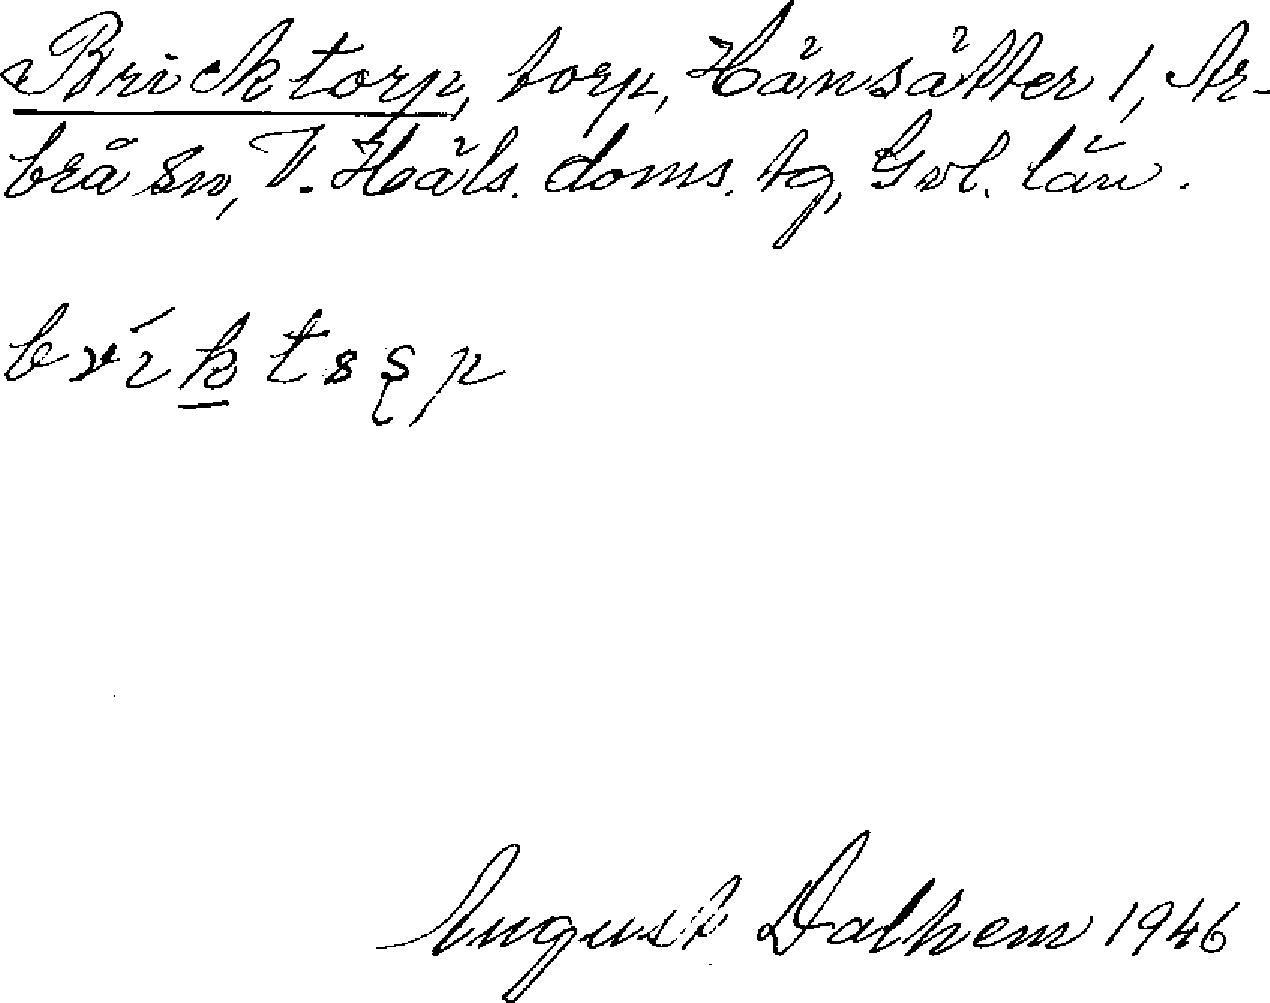 Bricktorp, torp, Hänsätter 1, Ar-
brå sn, V. Häls. doms. tg, Gvl. län.
August Dalhem 1946